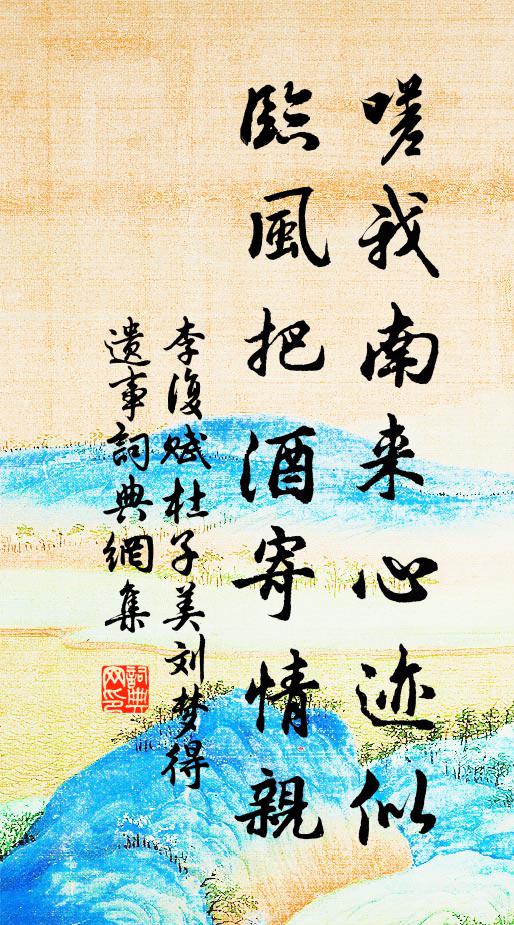 嗟我南来心迹似
臨風把酒寄情親
李復赋杜子美刘梦得
遺事詞典網集
詞典网印